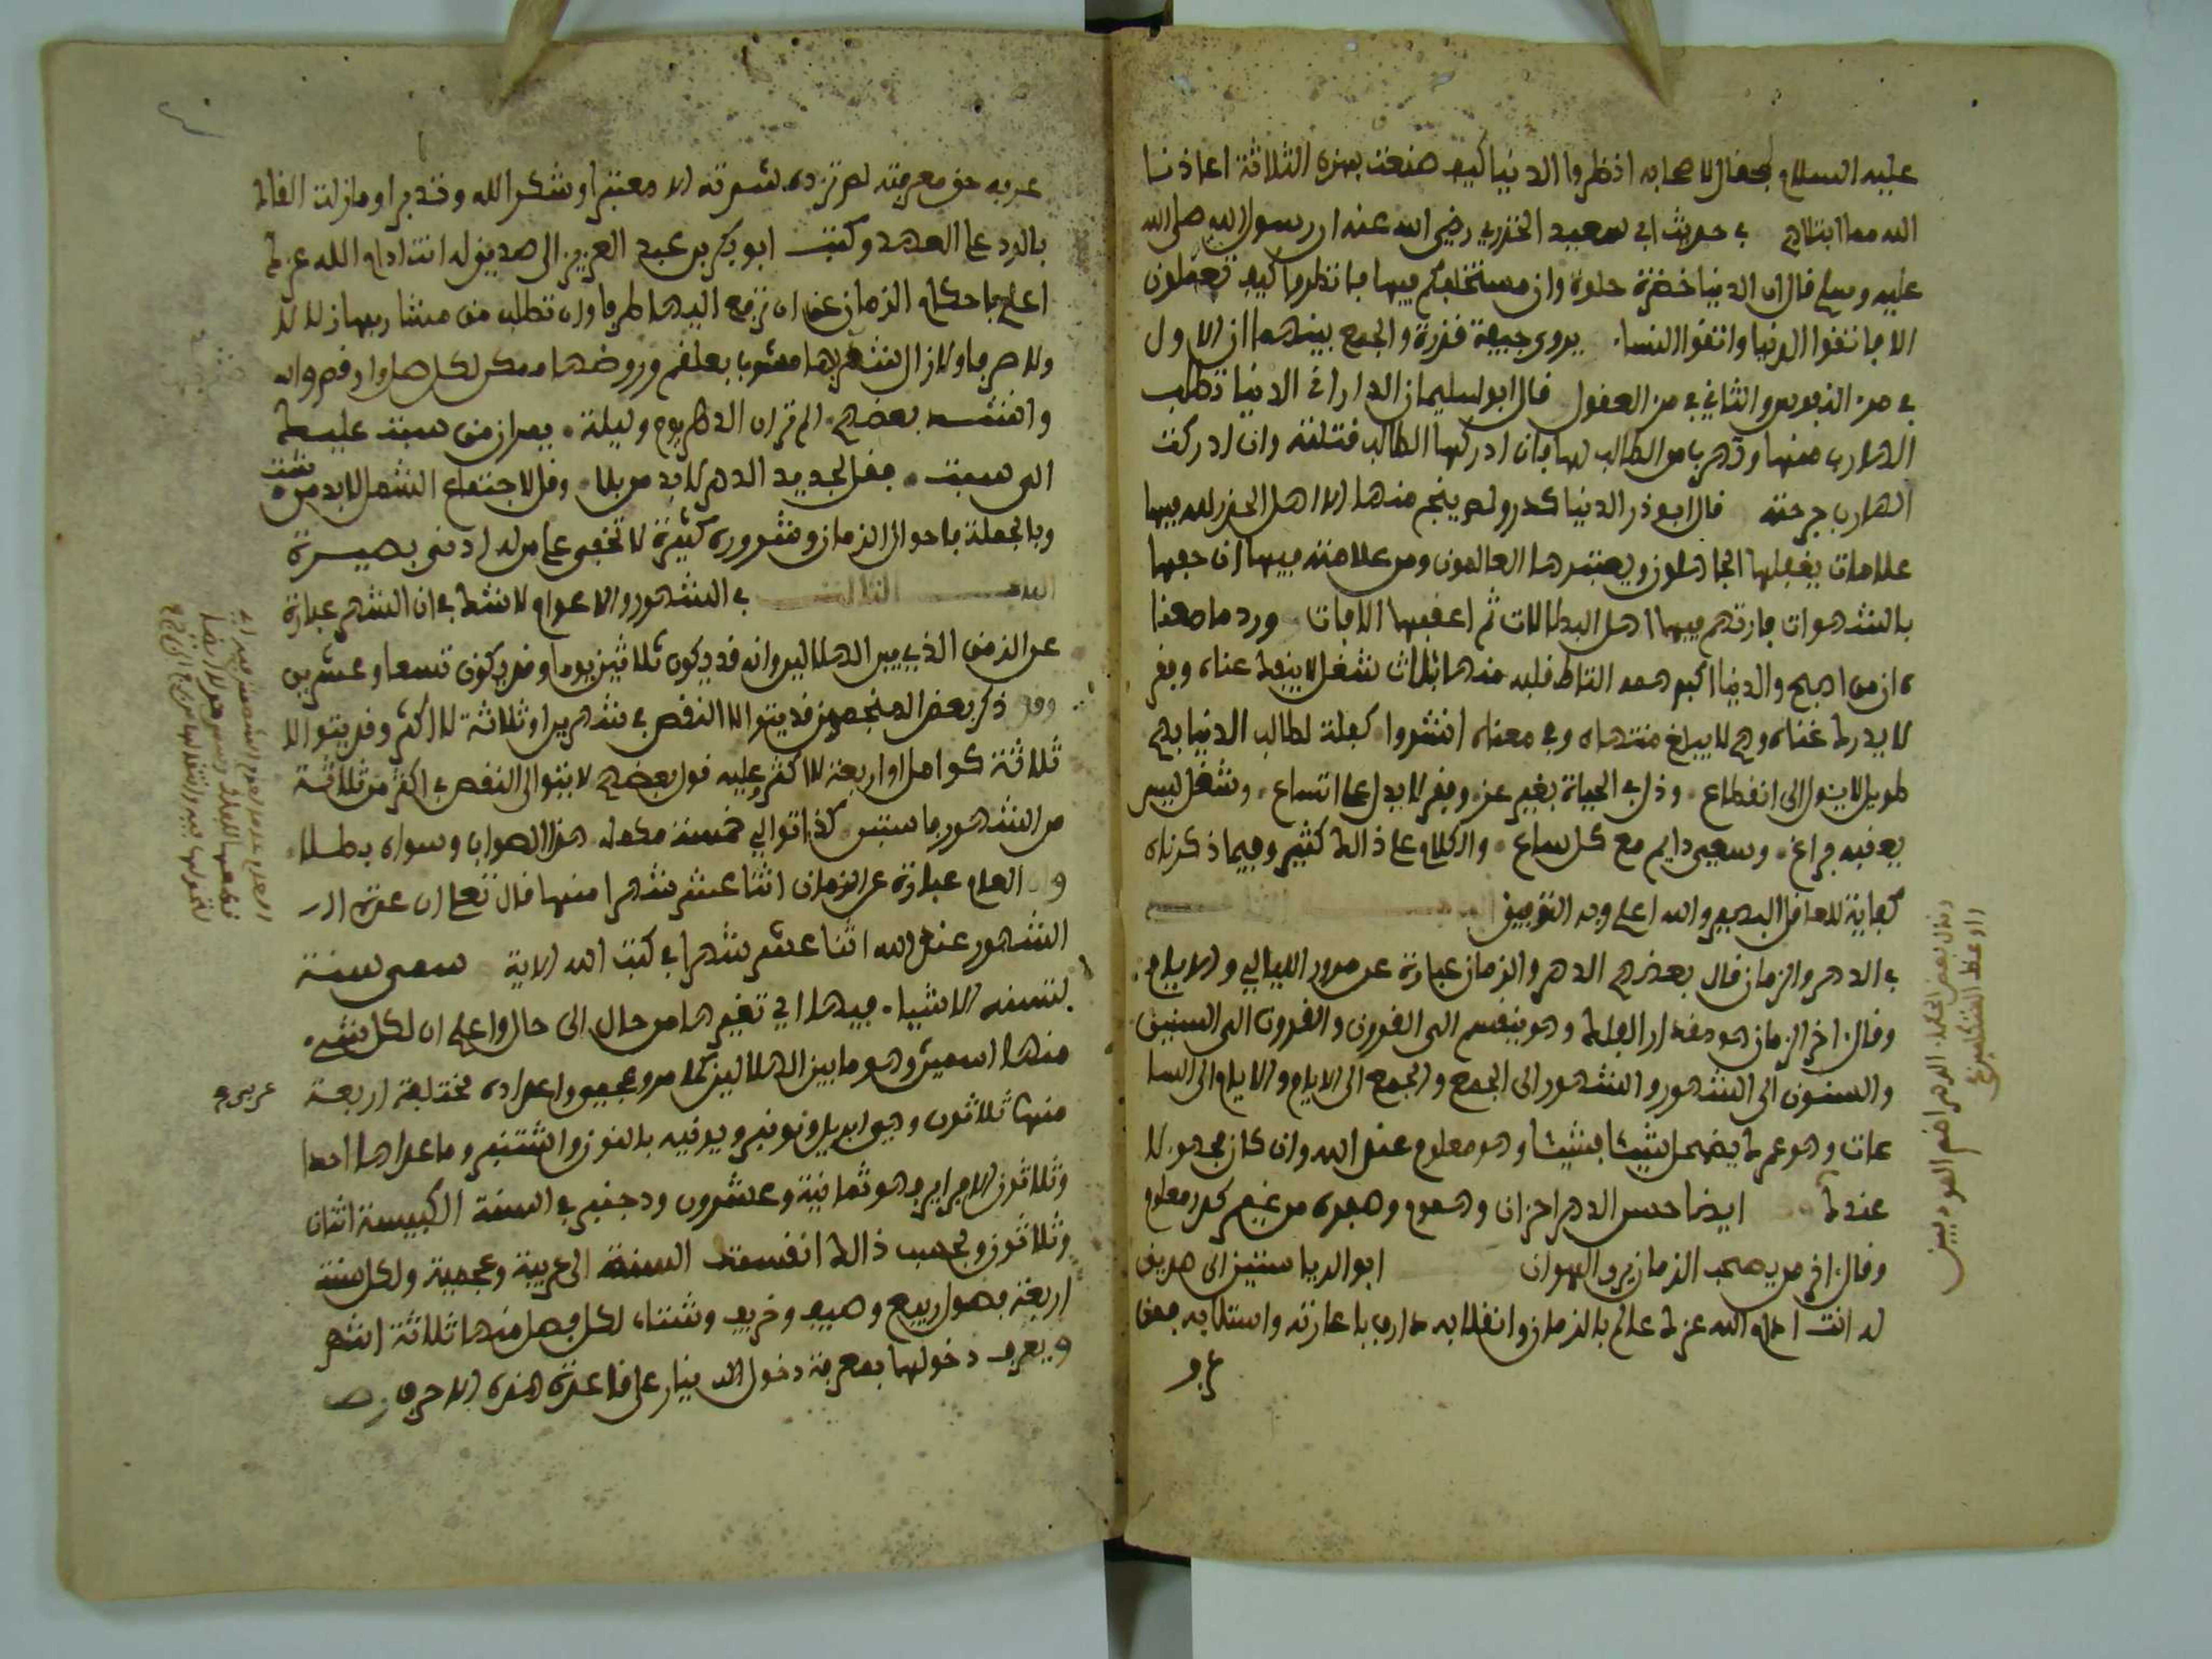 عليه السلام فقال لاصحابه انظروا الدنيا كيف صنعت بهزه الثلاثة اعاذنا
الله مما ابتلاهم في حديث ابي سعيد الخدري رضي الله عنه ان رسول الله صلى الله
عليه وسلم قال ان الدنيا خضرة حلوة وان مستخلفكم فيها فانظروا كيف تعملون
الا فاتقوا الدنيا واتقوا النساء يروى جيفة قذرة والجمع بينهما ان الاول
في من النفوس والثاني في من العقول قال ابو سليمان الداراني الدنيا تطلب
الهارب منها وتهرب من الطالب لها فان ادركها الطالب قتلته وان ادركت
الهارب جرحته قال ابو ذر الدنيا كدر ولم ينج منها الا اهل الحذر لله فيها
علامات يغفلها الجاهلون ويعتبرها العالمون ومن علامته فيها ان حفها
بالشهوات فارتهم فيها اهل البطالات ثم اعقبها الافات ورد ما معنا
ه ان من اصبح والدنيا اكبر همه التاط قلبه منها بثلاث شغل لا ينفك عناه وفقر
لا يدرك غناه وهم لا يبلغ منتهاه وفي معناه انشدوا كفلت لطالب الدنيا بهم
طويل لا يئول الى انقطاع وذل في الحياة بغير عز وفقر لا يدل على اتساع وشغل ليس
يعقبه فراغ وسعي دايم مع كل ساع والكلام على ذالك كثير وفيما ذكرناه
كفاية للعاقل البصير والله اعلم وبه التوفيق
في الدهر والزمان قال بعضهم الدهر والزمان عبارة عن مرور الليالي والايام
وقال اخر الزمان هو مقدار الفلك وهو ينقسم الى القرون والقرون الى السنين
والسنون الى الشهور والشهور الى الجمع والجمع الى الايام والايام الى السا
عات وهو عمرك يضمحل شيئا فشيئا وهو معلوم عند الله وان كان مجهولا
عندك ايضا حسن الدهر احزان وهموم وصفوه من غير كدر معلوم
وقال اخر من يصحب الزمان يرى الهوان ابو الدريا سنتين الى صديق
له انت ادام الله عزك عالم بالزمان وانقلابه دارب باعارته واستلابه فمن
عر و
وقال بعض الحكماء الدهر افصم المودبين
واوعظ المتكلمين
عرفه حق معرفته لم تزده شرته الا معتبرا وشكر الله وتدبرا وما زلت القاك
بالود على العهد وكتب ابو بكر بن عبد العزيز الى صديق له انت ادام الله عزك
اعلم باحكام الزمان من ان ترفع اليها طرفا وان تطلب من مشاربها زلالا
ولا صرفا ولا زال شهدها مشوبا بعلقم
وانشد بعضهم الم تر ان الدهر يوم وليلة يكران من سبت عليك
الى سبت فقل لجديد الدهر لا بد من بلا وقل لاجتماع الشمل لا بد من شت
وبالجملة فاحوال الزمان وشروره كثيرة لا تخفى على من له ادنى بصيرة
الفصل الثالث في الشهور والاعوام لا شك في ان الشهر عبارة
عن الزمن الذي بين الهلالين وانه قد يكون ثلاثين يوما وقد يكون تسعا وعشرين
وقد ذكر بعض المنجمين قد يتوالا النقص في شهرين او ثلاثة لا اكثر وقد يتوالا
ثلاثة كوامل او اربعة لا اكثر وعليه قول بعضهم لا يتوالى النقص في اكثر من ثلاثة
من الشهور يا فتى كذا توالي خمسة مكمله هذا الصواب وسواه بطلا
وان العام عبارة عن الزمان اثنا عشر شهرا منها قال تعلى ان عدة الـ
الشهور عند الله اثنا عشر شهرا في كتب الله الاية سمي سنة
لتسنه الاشياء فيها اي تغيرها من حال الى حال واعلم ان لكل شيء
منها اسمين وهو ما بين الهلالين كما مر وعجمي واعداده مختلفة اربعة
عربي و
منها ثلاثون وهو ابريل ونونبر ويونيه بالنون واشتنبر وما عداها احدا
وثلاثون الا فراير فهو ثمانية وعشرون ودجنبر في السنة الكبيسة اثنان
وثلاثون وبحسب ذالك انقسمت السنة الى عربية وعجمية ولكل سنة
اربعة فصول ربيع وصيف وخريف وشتاء لكل فصل منها ثلاثة اشهر
ويعرف دخولها بمعرفة دخول الدينار على قاعدة هذه الاحرف